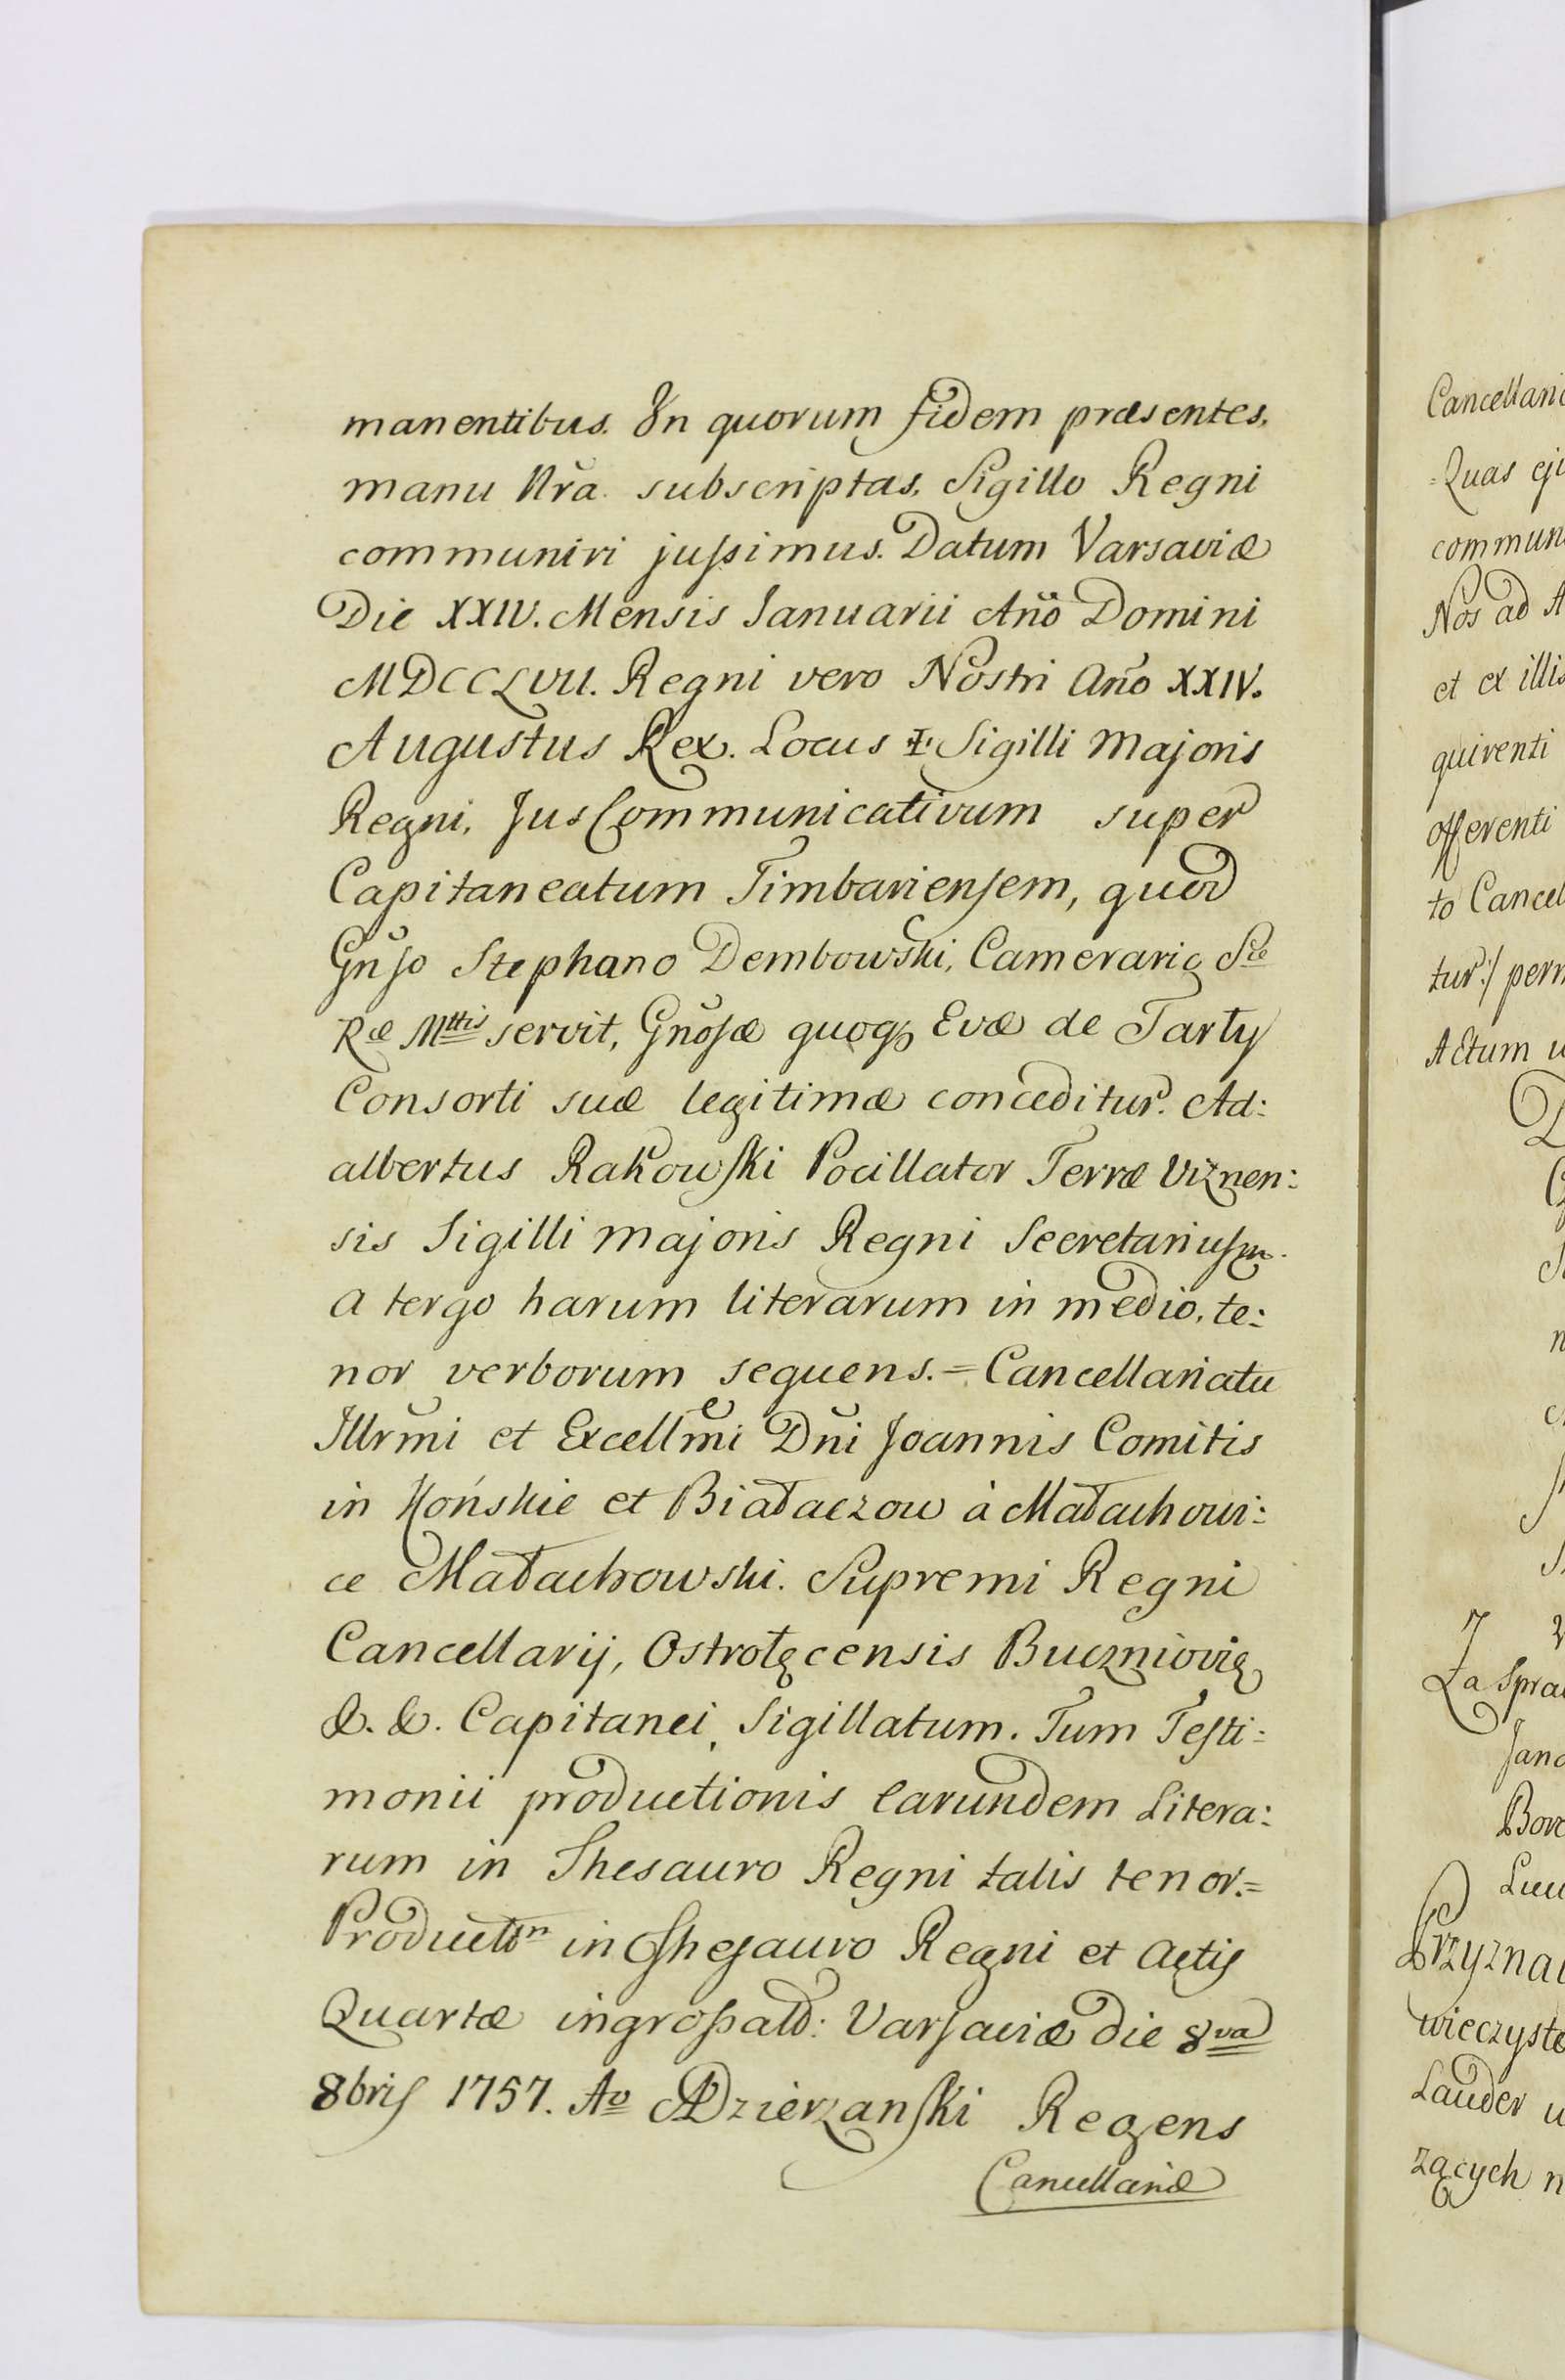 manentibus. In quorum fidem præsentes,
manu Nr̃a. subscriptas, Sigillo Regni
communiri jussimus. Datum Varsaviæ
Die XXIV. Mensis Ianuarii Año Domini
MDCCLVII. Regni vero Nostri Año XXIV.
Augustus Rex. Locus Sigilli Majoris
Regni, Jus Communicativum super
Capitaneatum Timbariensem, quod
Gñso Stephano Dembowski, Camerario Sæ
Ræ Mttis servit, Gñosæ quoq₃ Evæ de Tarły
Consorti suæ legitimæ conceditur. Ad:
albertus Rakowski Pocillator Terræ Viznen:
sis Sigilli Majoris Regni Secretarius
a tergo harum literarum in medio, te:
nor verborum sequens.= Cancellariatu
Illr̃mi et Excellm̃i Dñi Joannis Comitis
in Końskie et Białaczow à Małachowi:
ce Małachowski. Supremi Regni
Cancellarij, Ostrołęcensis
&. &. Capitanei, Sigillatum. Tum Testi:
monii productionis earundem Litera:
rum in Thesauro Regni talis tenor.=
in Thesauro Regni et Actis
Quartæ Varsaviæ die 8va
8bris 1757. Ao ADzierzanski Regens
Cancellariæ
Cancellari
Quas
commun
Nos ad A
et ex illis
quirenti
offerenti
to Cancel
tur:/ perm
Actum u
Za Spra
Przyzna
wieczyste
Lauder u
zących n